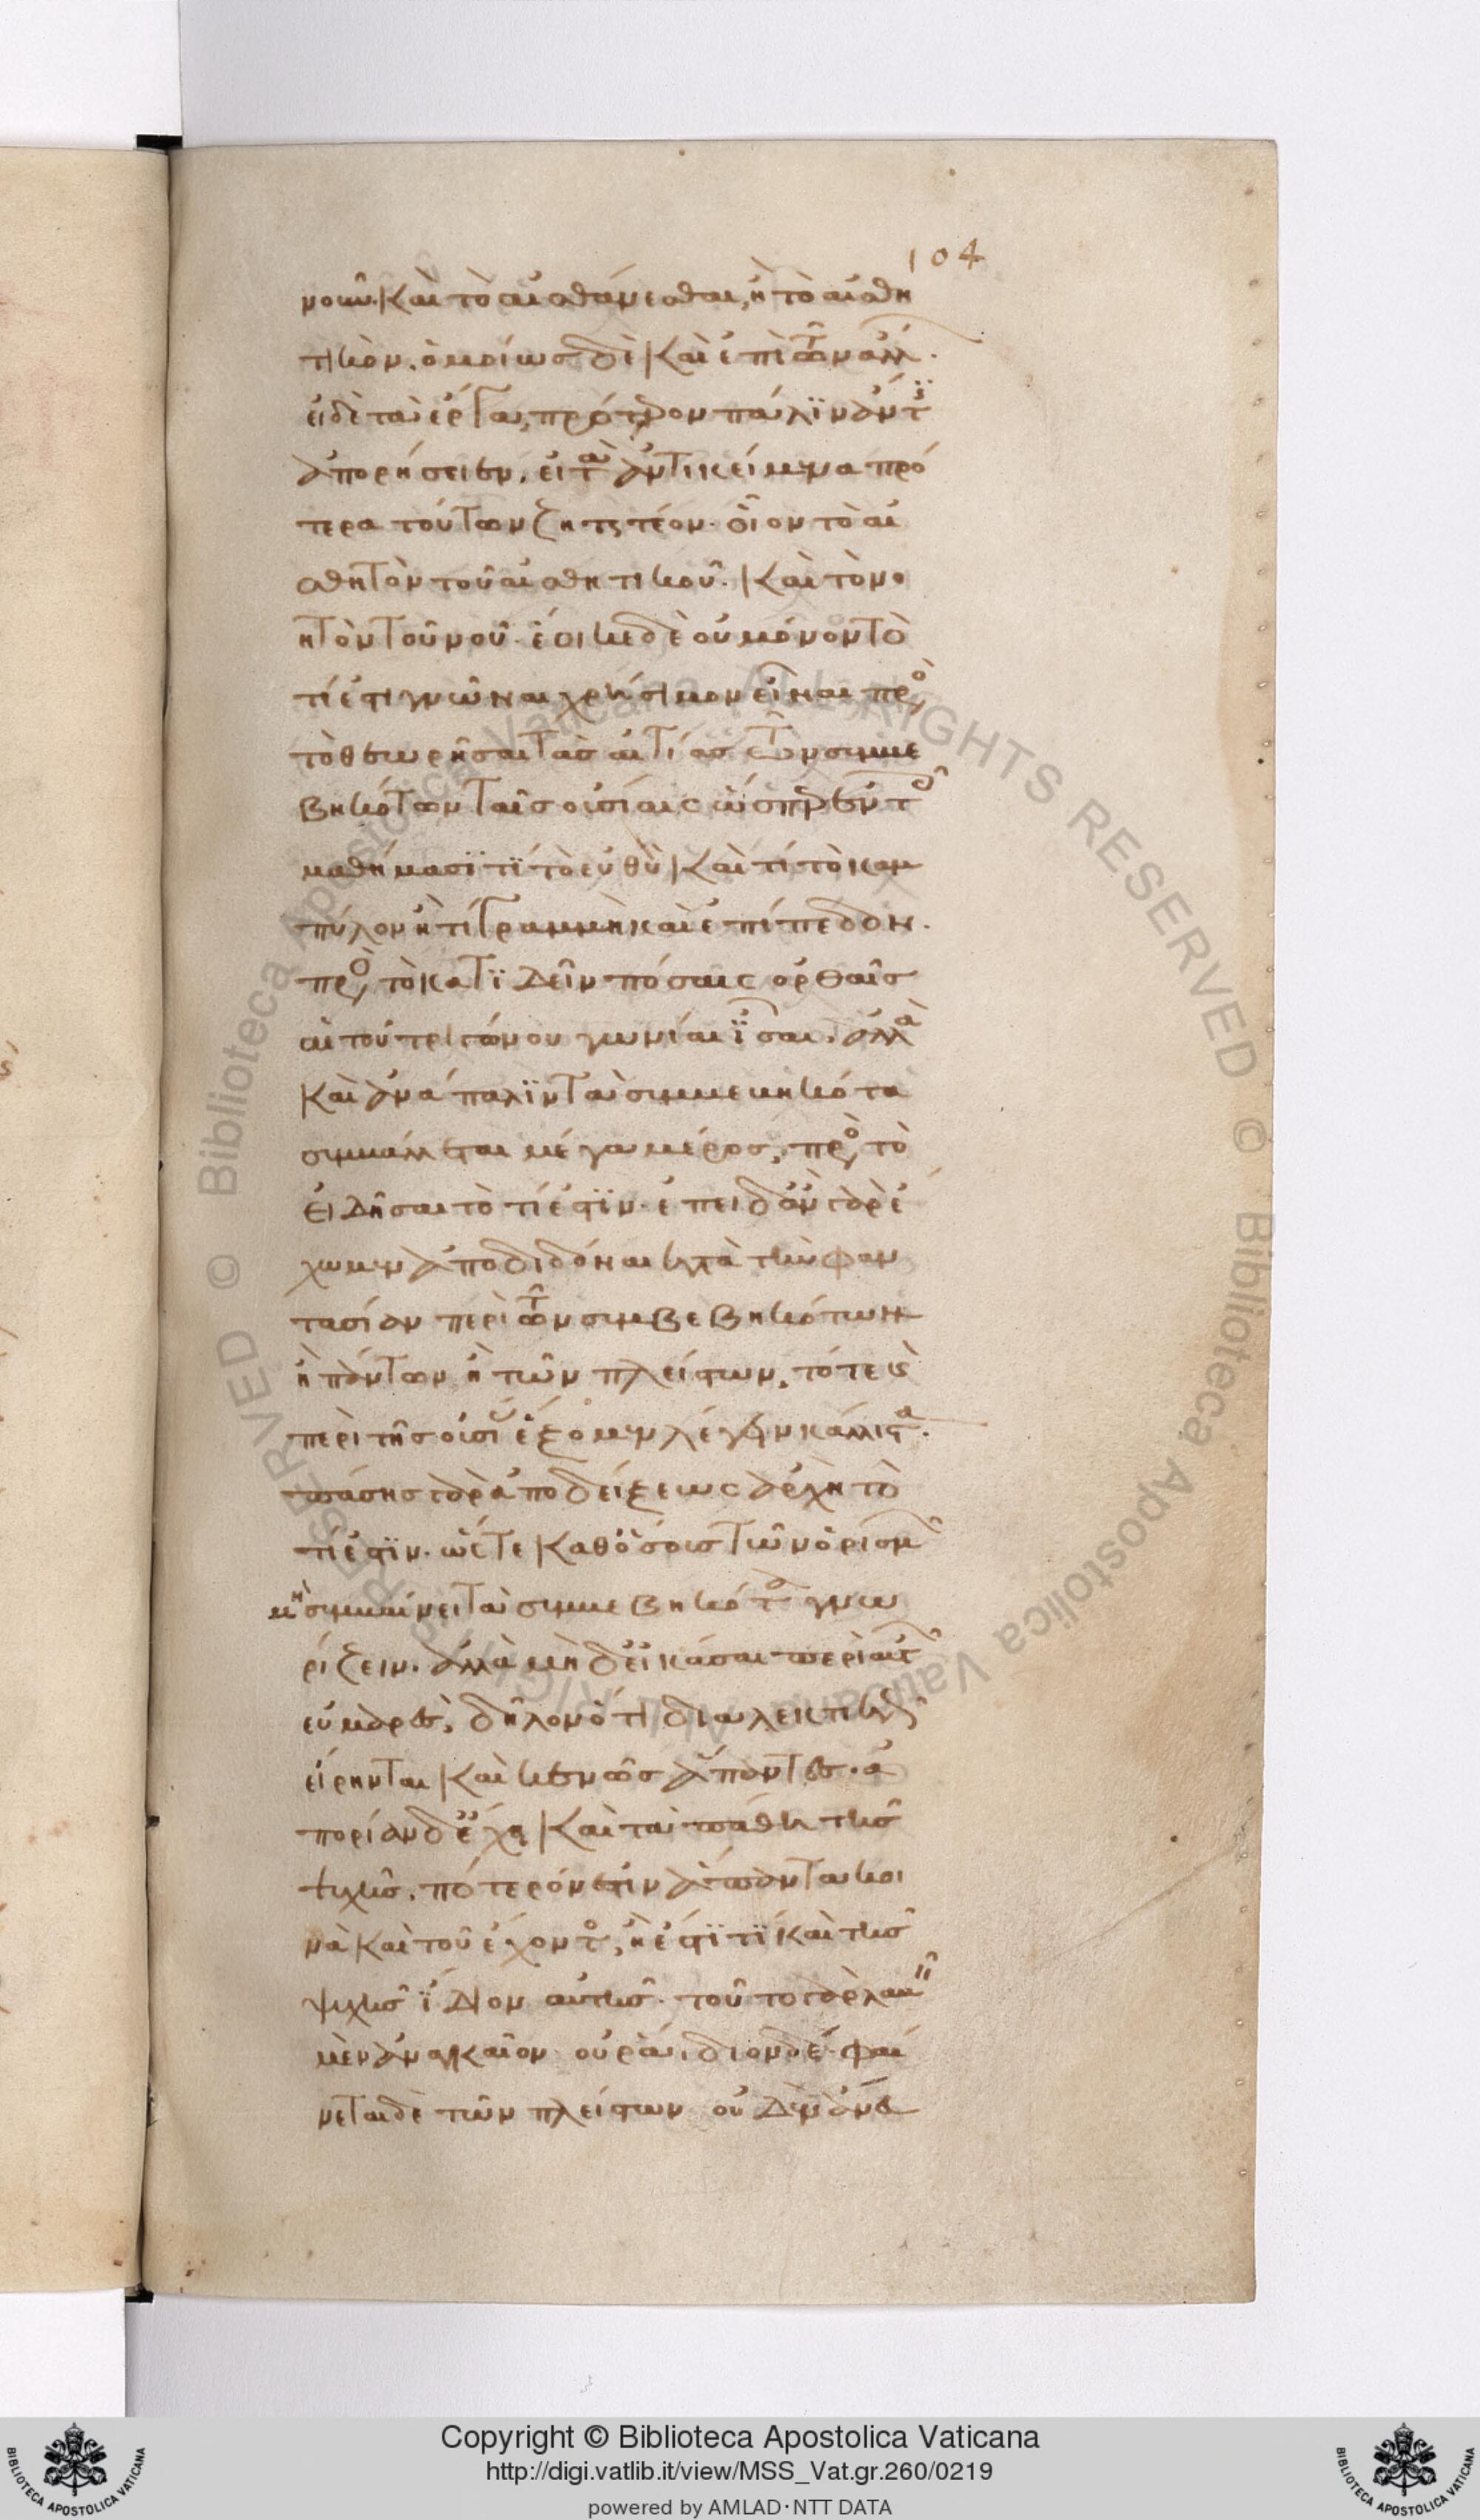 104
νοῦν· καὶ τὸ αἰσθάνεσθαι, ἢ τὸ αἰσθη
τικόν. ὁμοίως δὲ καὶ ἐπὶ τῶν ἄλλ.
εἰ δὲ τὰ ἔργα, πρότερον πάλϊν ἄν τϊς
ἀπορήσειεν. εἰ τὰ ἀντικείμενα πρό
τερα τούτων ζητητέον. οἷον τὸ αἰ
σθητὸν τοῦ αἰσθητικοῦ. καὶ τὸ νο
ητὸν τοῦ νοῦ. ἔοικε δὲ οὐ μόνον τὸ
τί ἐστι γνῶναι χρήσιμον εἶναι πρὸς
τὸ θεωρῆσαι τὰς αἰτίας τῶν συμβε
βηκότων ταῖς οὐσίαις ὥσπερ ἐν τοῖς
μαθήμασϊ τϊ τὸ εὐθὺ καὶ τί τὸ καμ
πύλον ἢ τί γραμμὴ καὶ ἐπίπεδον.
πρὸς τὸ κατϊδεῖν πόσαις ὀρθαῖς
αἱ τοῦ τριγώνου γωνίαι ἴσαι. ἀλλὰ
καὶ ἀνάπαλϊν τὰ συμβεβηκότα
συμβάλλεται μέγα μέρος, πρὸς τὸ
εἰδῆσαι τὸ τί ἐστϊν. ἐπειδὰν γὰρ ἔ
χωμεν ἀποδιδόναι κατὰ τὴν φαν
τασίαν περὶ τῶν συμβεβηκότων
ἢ πάντων ἢ τῶν πλείστων, τότε καὶ
περὶ τῆς οὐσίας ἕξομεν λέγειν κάλλιστα.
πάσης γὰρ ἀποδείξεως ἀρχὴ τὸ
τί ἐστϊν. ὥστε καθ' ὅσοις τῶν ὁρισμῶν
μὴ συμβαίνει τὰ συμβεβηκότα γνω
ρίζειν. ἀλλὰ μηδ' εἰκάσαι περὶ αὐτῶν
εὐμαρὲς, δῆλον ὅτι διαλεκτικῶς
εἴρηνται καὶ κενῶς ἅπαντες. ἀ
πορίαν δ' ἔχει καὶ τὰ πάθη τῆς
ψυχῆς. πότερόν ἐστιν ἅπαντα κοι
νὰ καὶ τοῦ ἔχοντος, ἢ ἔστϊ τϊ καὶ τῆς
ψυχῆς ἴδιον αὐτῆς. τοῦτο γὰρ λαβεῖν
μὲν ἀναγκαῖον οὐ ῥάιδιον δὲ. φαί
νεται δὲ τῶν πλείστων οὐδὲν ἄνευ
Copyright © Biblioteca Apostolica Vaticana
http://digi.vatlib.it/view/MSS_Vat.gr.260/0219
powered by AMLAD·NTT DATA